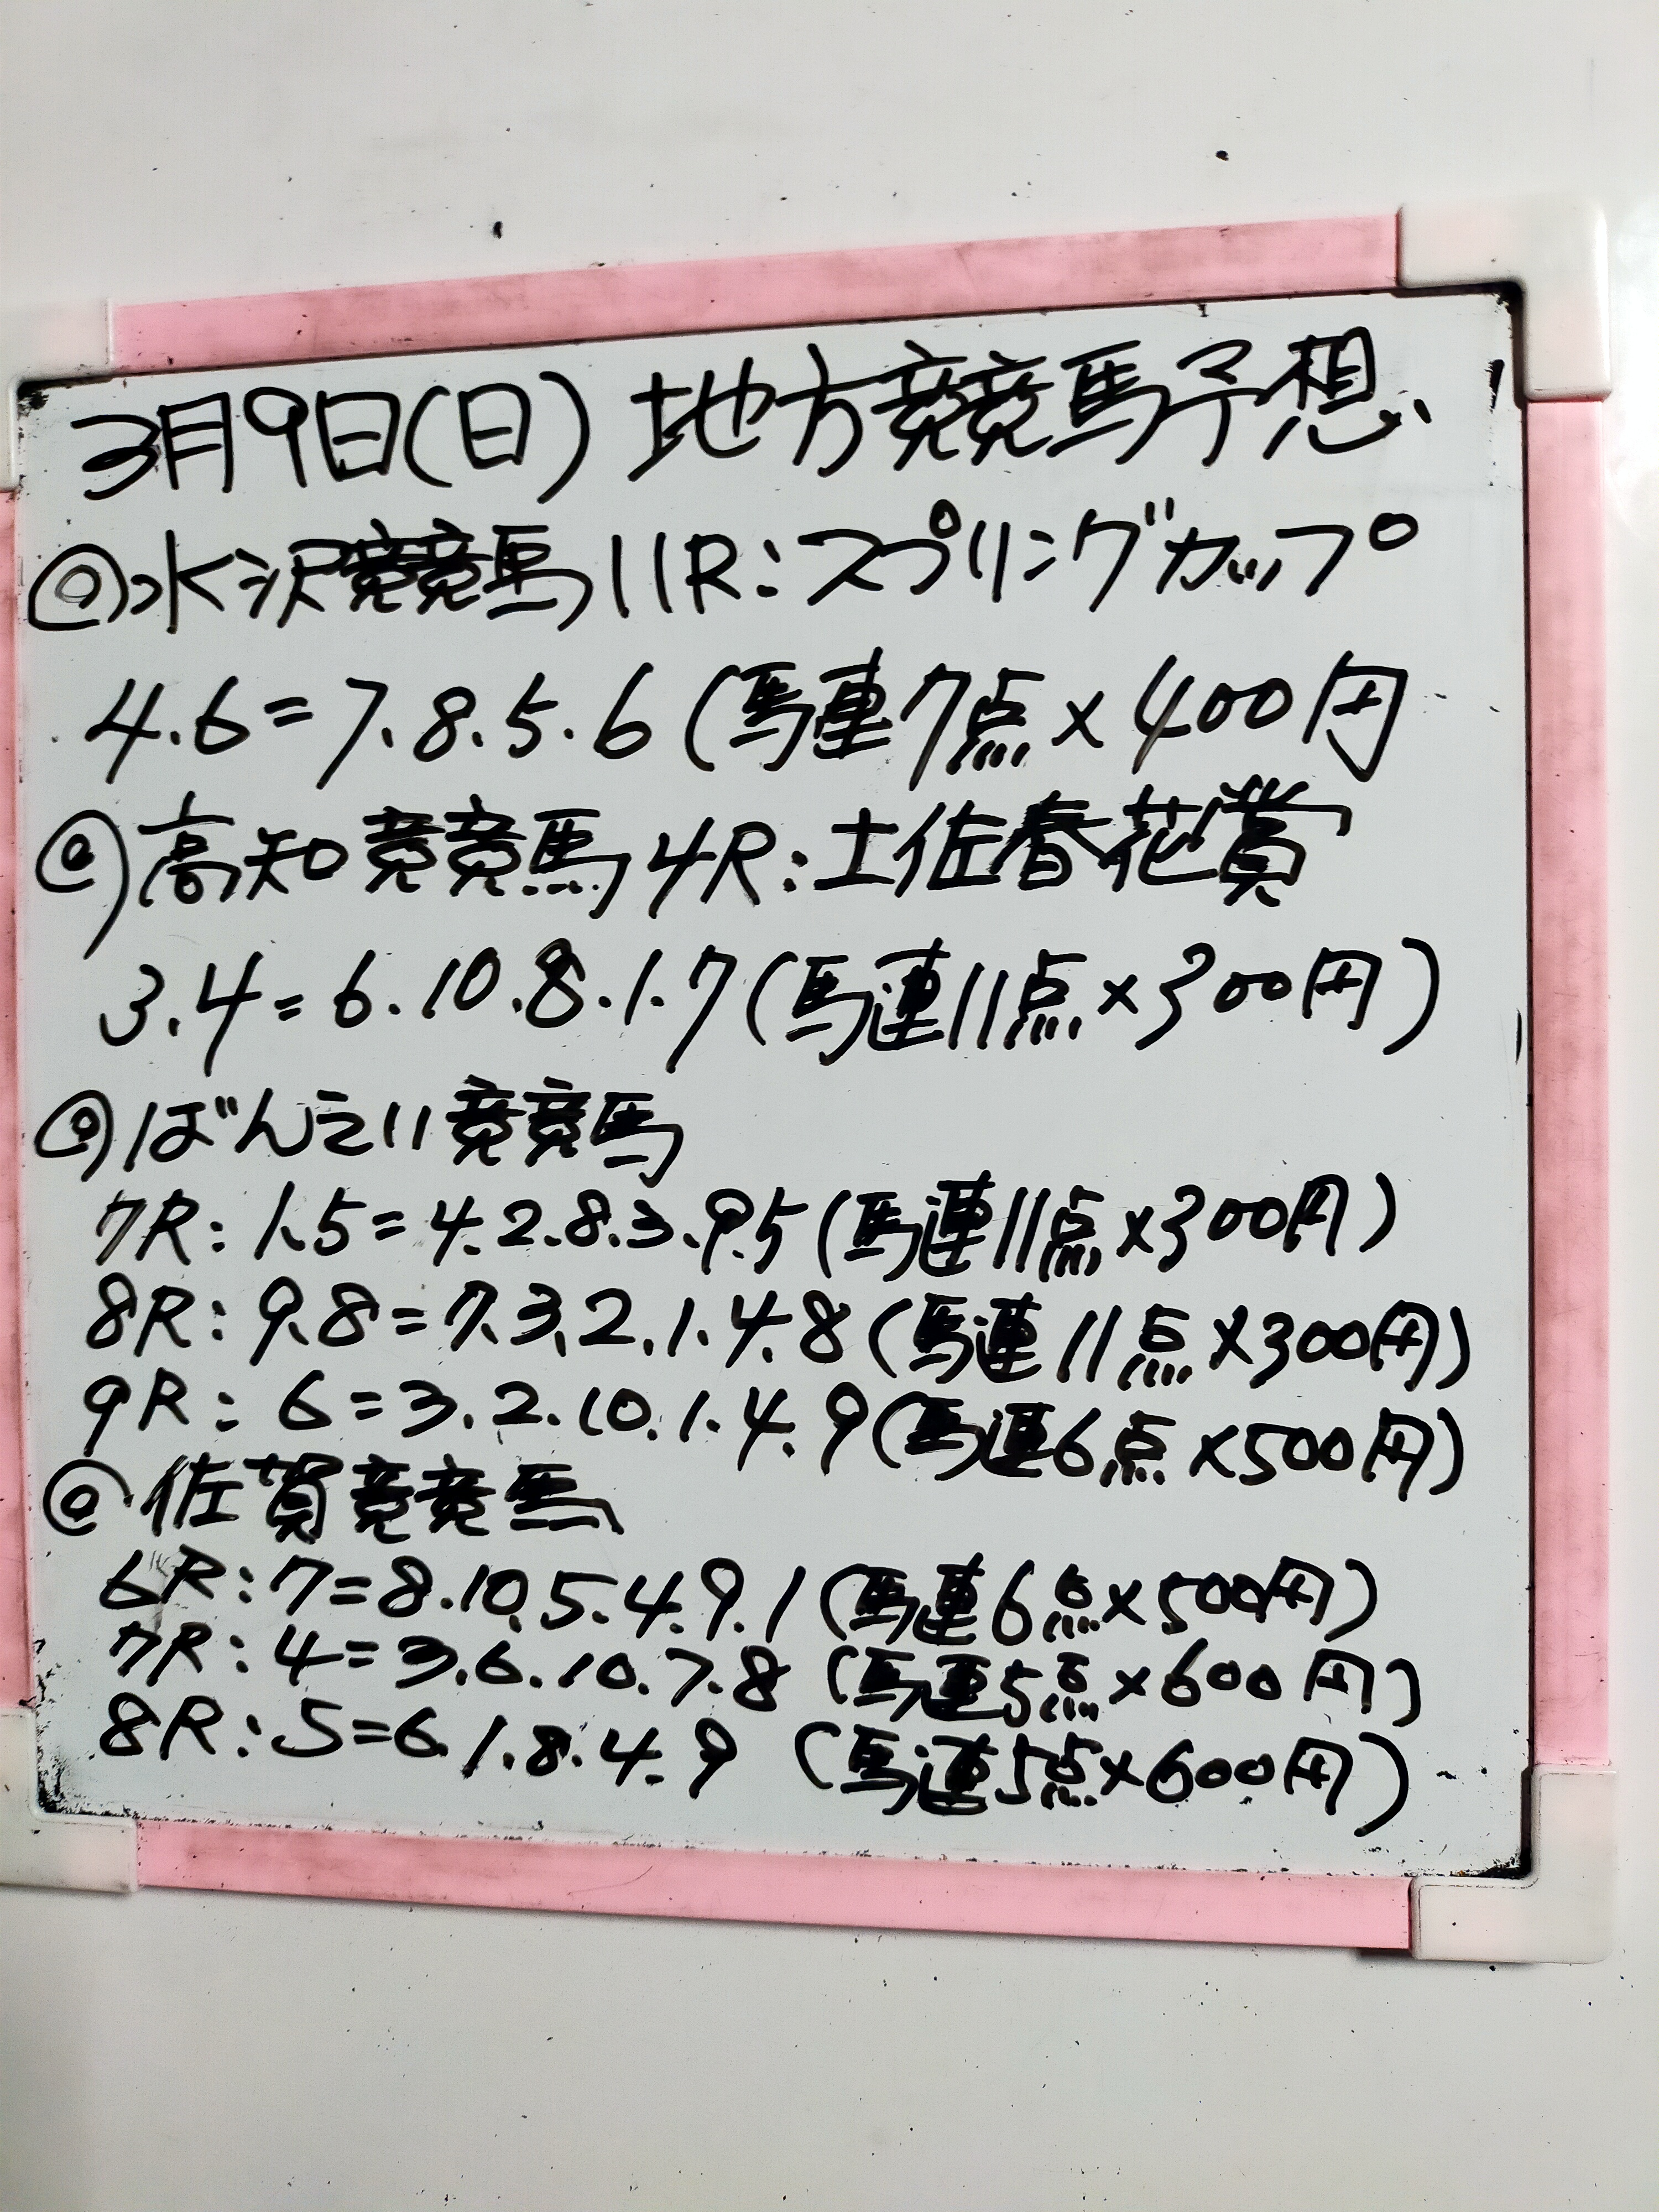 3月9日(日)地方競馬予想
◎水沢競馬11R:スプリングカップ
4.6=7.8.5.6(馬連7点×400円
◎高知競馬4R:土佐春花賞
3.4=6.10.8.1.7(馬連11点×300円)
◎ばんえい競馬
7R:1.5=4.2.8.3.9.5(馬連11点×300円)
8R:9.8=7.3.2.1.4.8(馬連11点×300円)
9R:6=3.2.10.1.4.9(馬連6点×500円)
◎佐賀競馬
6R:7=8.10.5.4.9.1(馬連6点×500円)
7R:4=3.6.10.7.8(馬連5点×600円)
8R:5=6.1.8.4.9(馬連5点×600円)